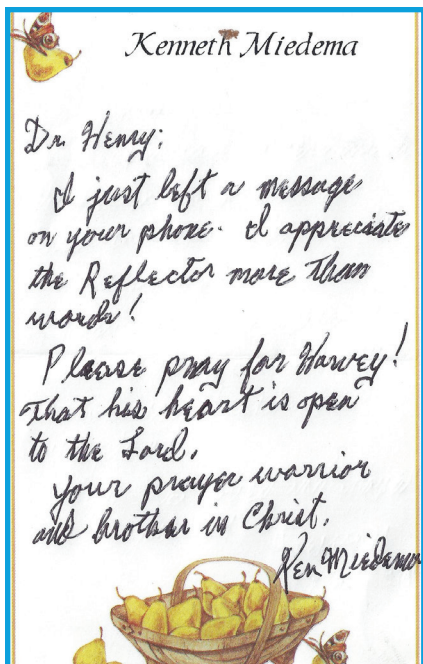 Kenneth Miedema
Dr. Henry:
I just left a message
on your phone. I appreciate
the Reflector more than
words!
Please pray for Harvey!
That his heart is open
to the Lord.
Your prayer warrior
and brother in Christ.
Ken Miedema